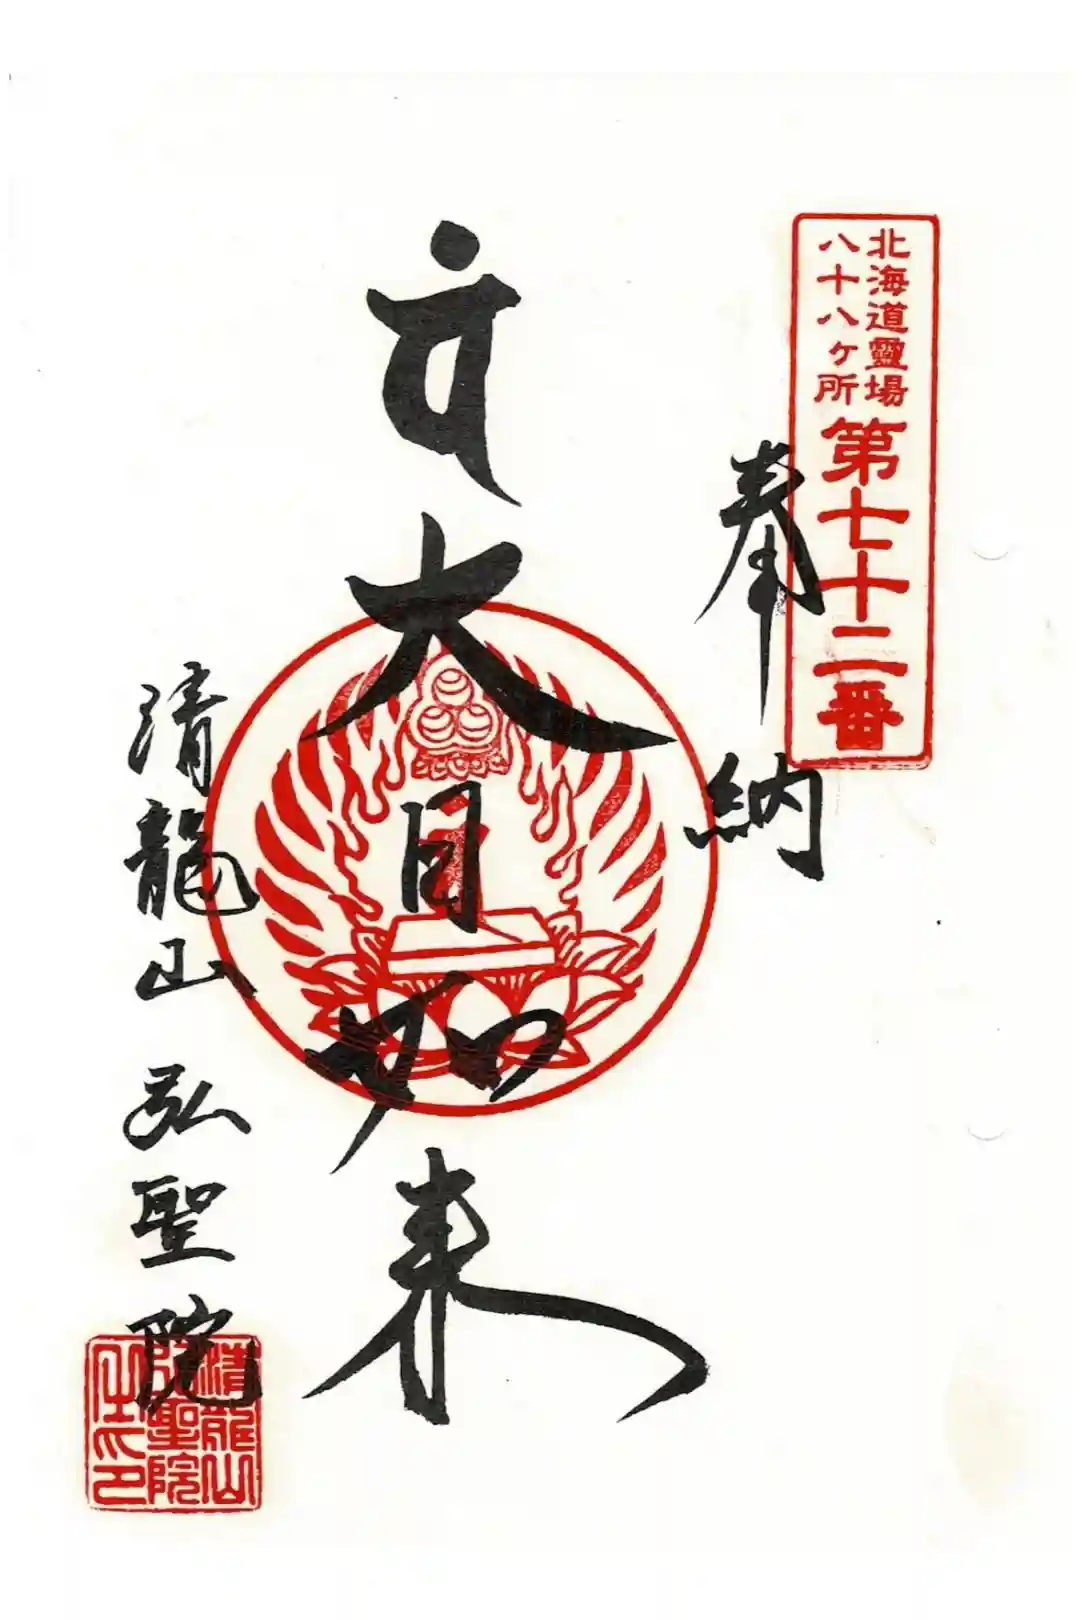 北海道靈場
八十八ヶ所
第七十二番
奉納
大日如来
清龍山 弘聖院
清龍山
弘聖院